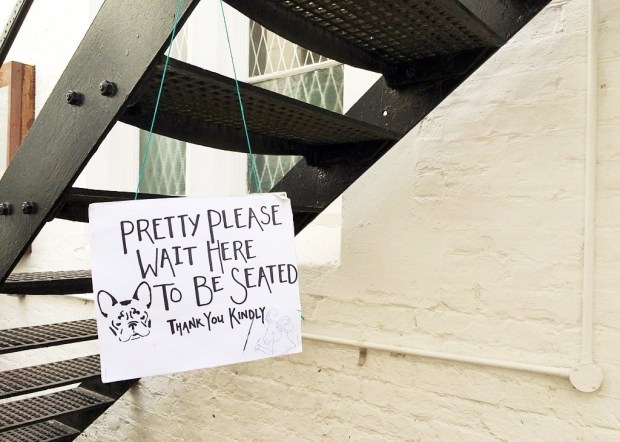 PRETTY PLEASE
WAIT HERE
TO BE SEATED
THANK YOU KINDLY